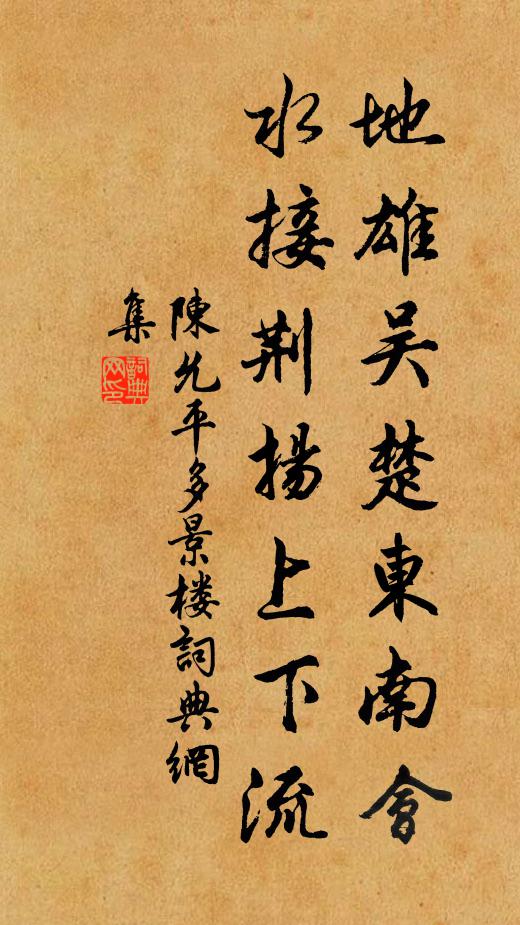 地雄吴楚東南會
水接荆揚上下流
陳允平多景楼詞典網
集
詞典網印